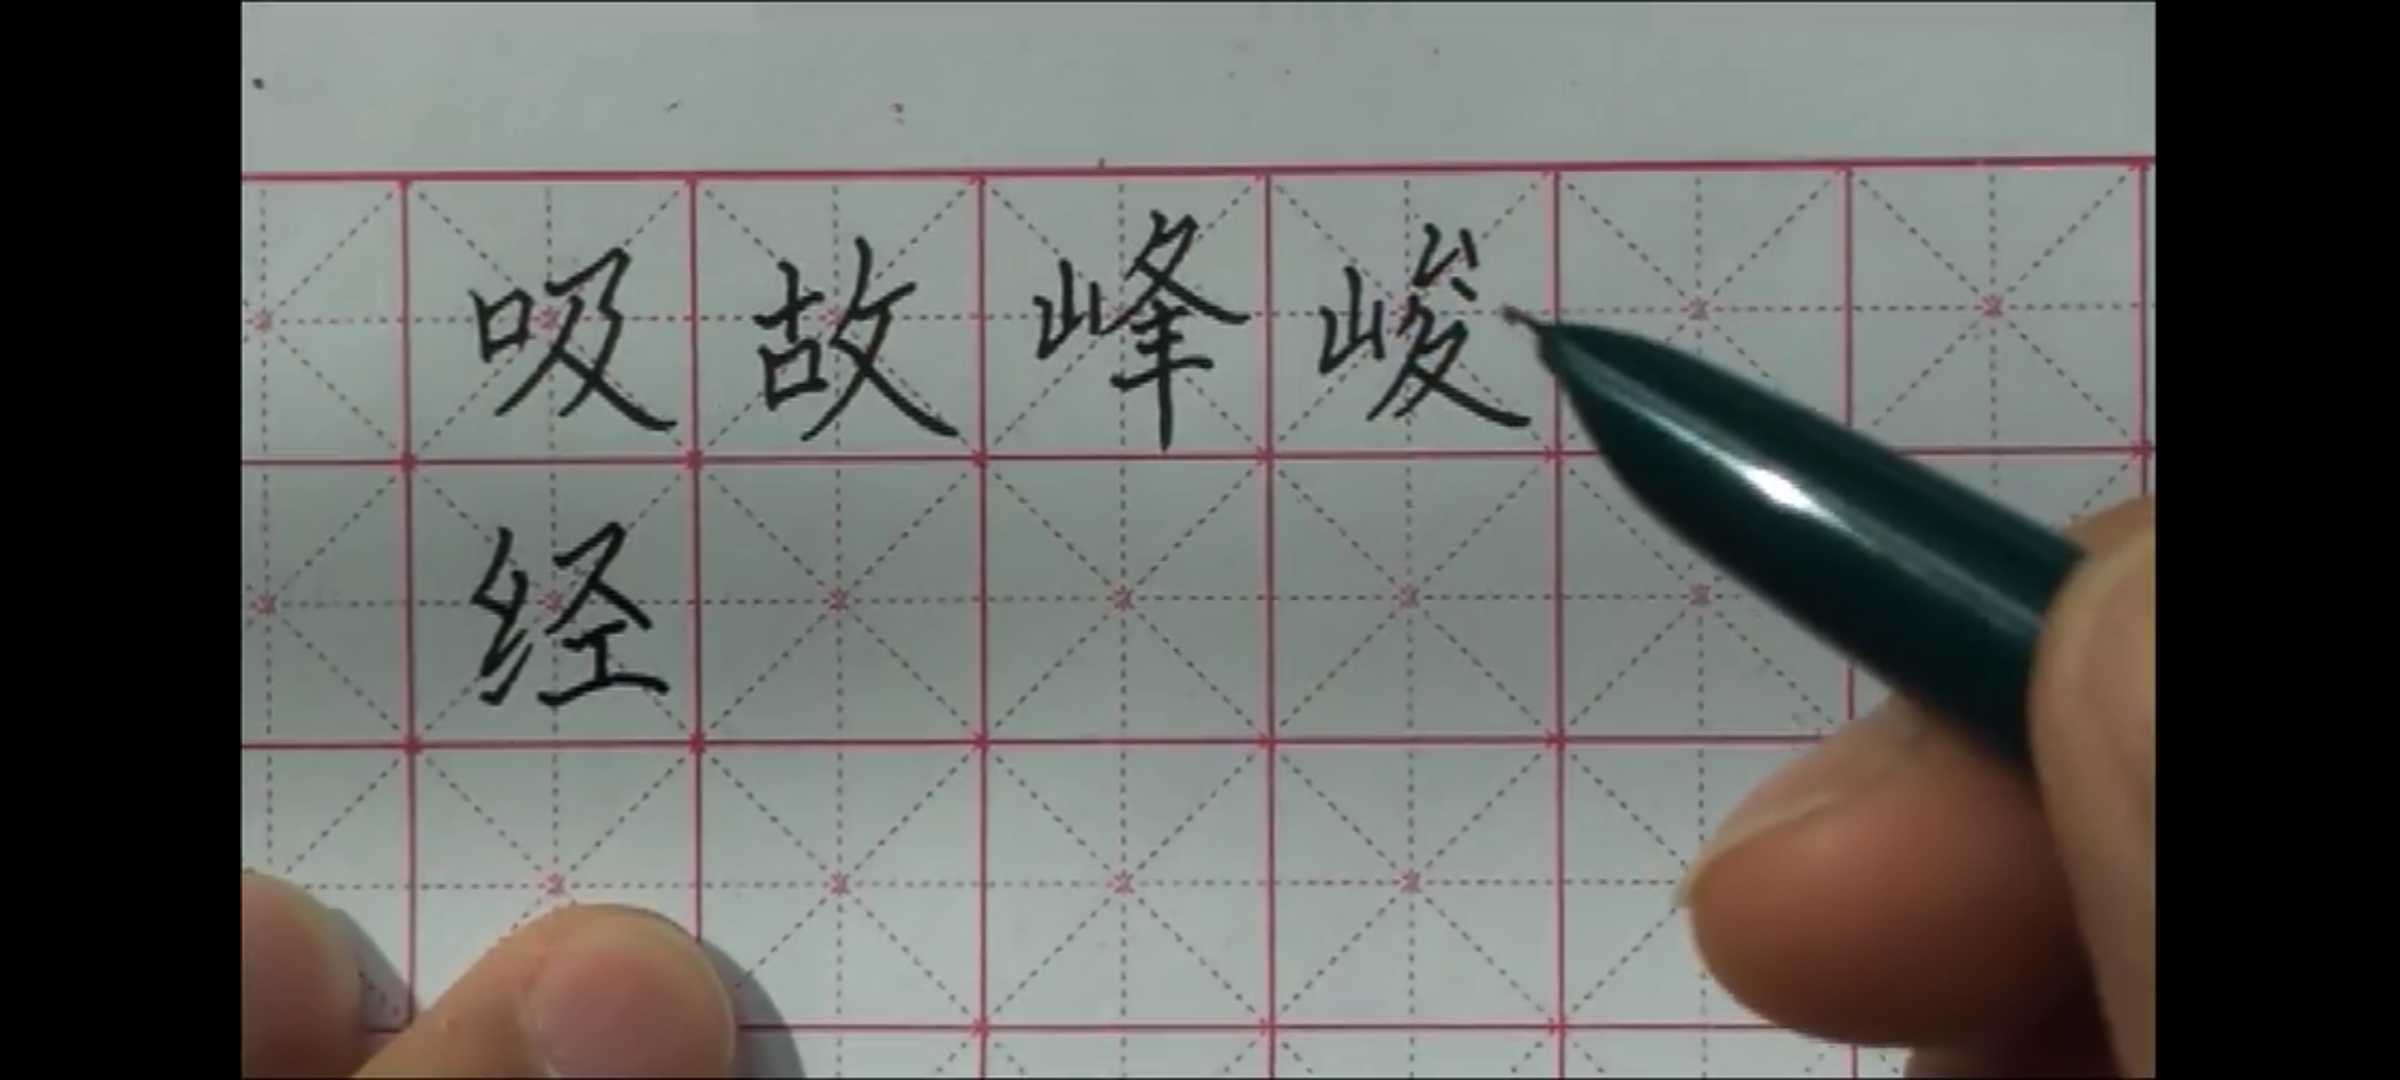 吸故峰峻
经